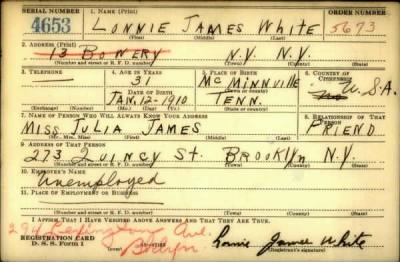 SERIAL NUMBER 1. NAME (Print) ORDER NUMBER
4653 LONNIE JAMES WHITE 5673
(First) (Middle) (Last)
2. ADDRESS (Print)
13 BOWERY N.Y. N.Y.
(Number and street or R. F. D. number) (Town) (County) (State)
3. TELEPHONE 4. AGE IN YEARS 5. PLACE OF BIRTH 6. COUNTRY OF CITIZENSHIP
31 MCMINNVILLE U.S.A.
DATE OF BIRTH (Town or county)
JAN. 12-1910 TENN.
(Exchange) (Number) (Mo.) (Day) (Yr.) (State or country)
7. NAME OF PERSON WHO WILL ALWAYS KNOW YOUR ADDRESS 8. RELATIONSHIP OF THAT PERSON
MISS JULIA JAMES FRIEND
(Mr., Mrs., Miss) (First) (Middle) (Last)
9. ADDRESS OF THAT PERSON
273 QUINCY St. BROOKLYN N.Y.
(Number and street or R. F. D. number) (Town) (County) (State)
10. EMPLOYER'S NAME
Unemployed
11. PLACE OF EMPLOYMENT OR BUSINESS
(Number and street or R. F. D. number) (Town) (County) (State)
I AFFIRM THAT I HAVE VERIFIED ABOVE ANSWERS AND THAT THEY ARE TRUE.
294 Lexington Ave.
Bklyn
REGISTRATION CARD
D. S. S. Form 1 Lonnie James White
(Registrant's signature)